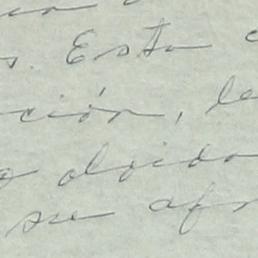 s. Esta
ción, le
o olvido
su afr